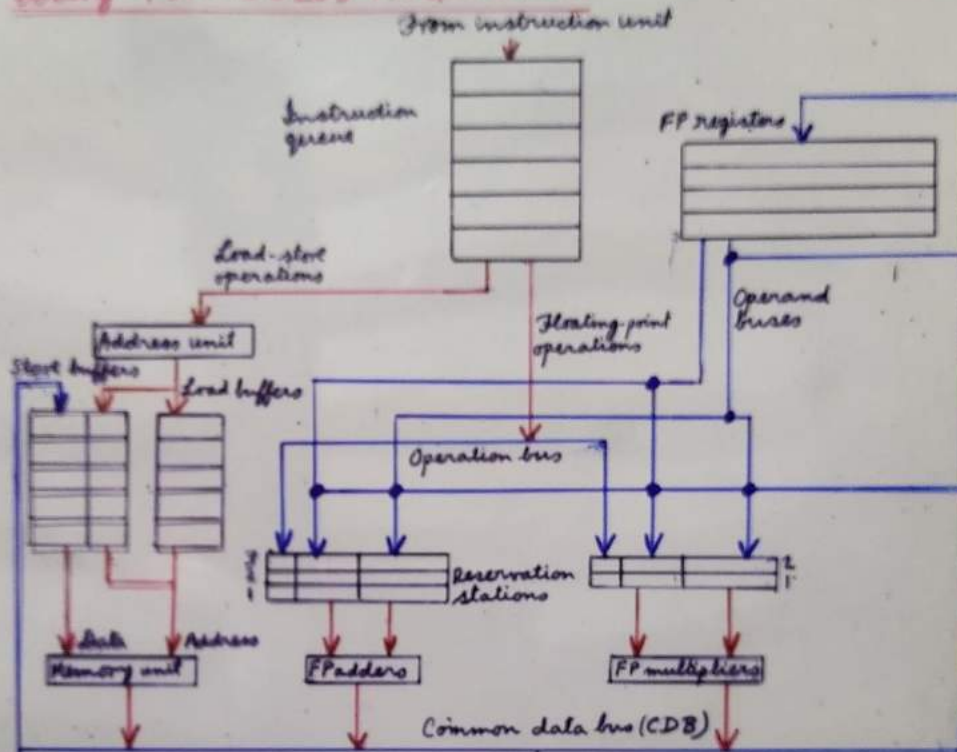 From instruction unit
Instruction
queue
FP registers
Load-store
operations
Operand
buses
Floating-point
operations
Address unit
Store buffers
Load buffers
Operation bus
3
2
1
Reservation
stations
2
1
Data
Address
Memory unit
FP adders
FP multipliers
Common data bus (CDB)